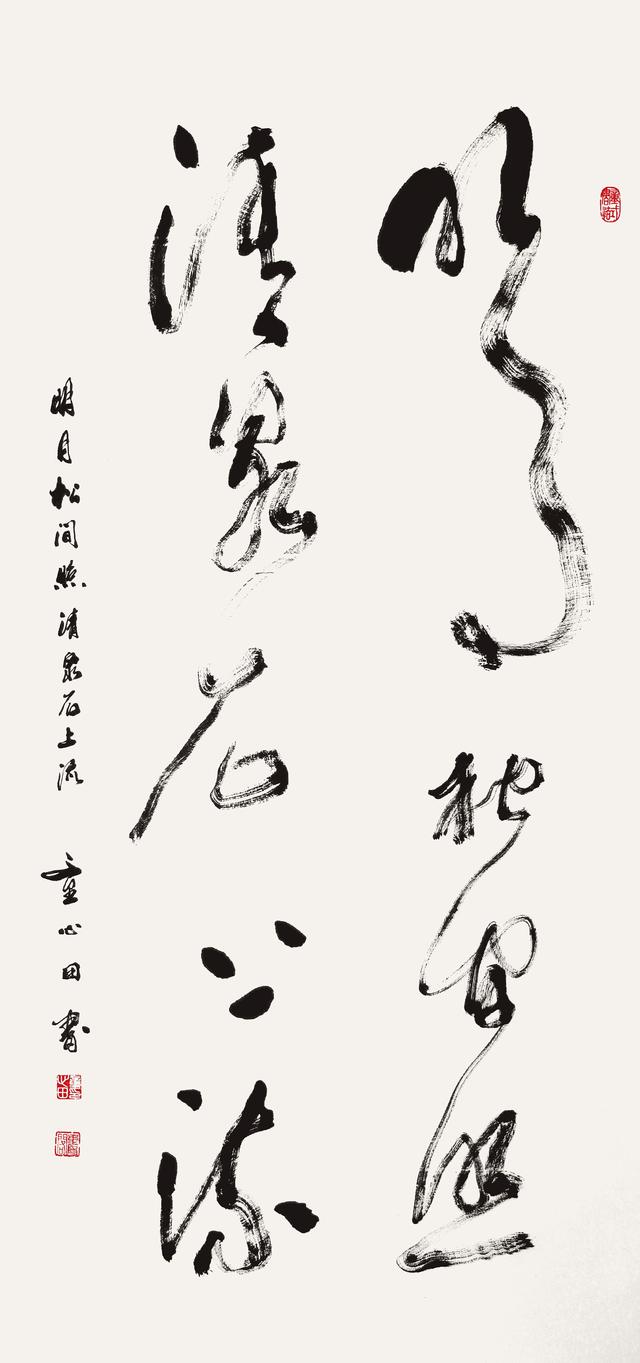 明月松间照
清泉石上流
明月松间照清泉石上流 童心田书